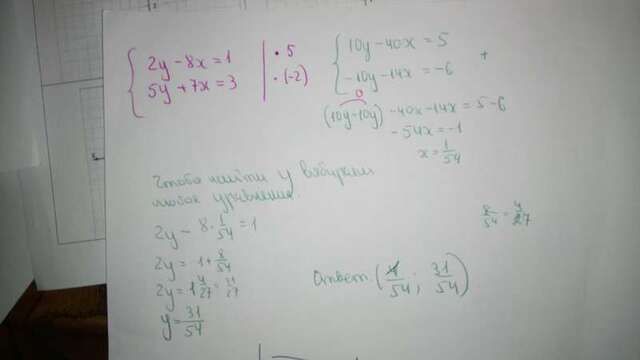 2y - 8x = 1 | · 5
5y + 7x = 3 | · (-2)
10y - 40x = 5
-10y - 14x = -6 +
0
(10y - 10y) - 40x - 14x = 5 - 6
- 54x = -1
x = 1/54
Чтобы найти y выбираем
любое уравнение.
2y - 8 · 1/54 = 1
2y = 1 + 8/54
2y = 1 4/27 = 31/27
y = 31/54
8/54 = 4/27
Ответ (1/54; 31/54)